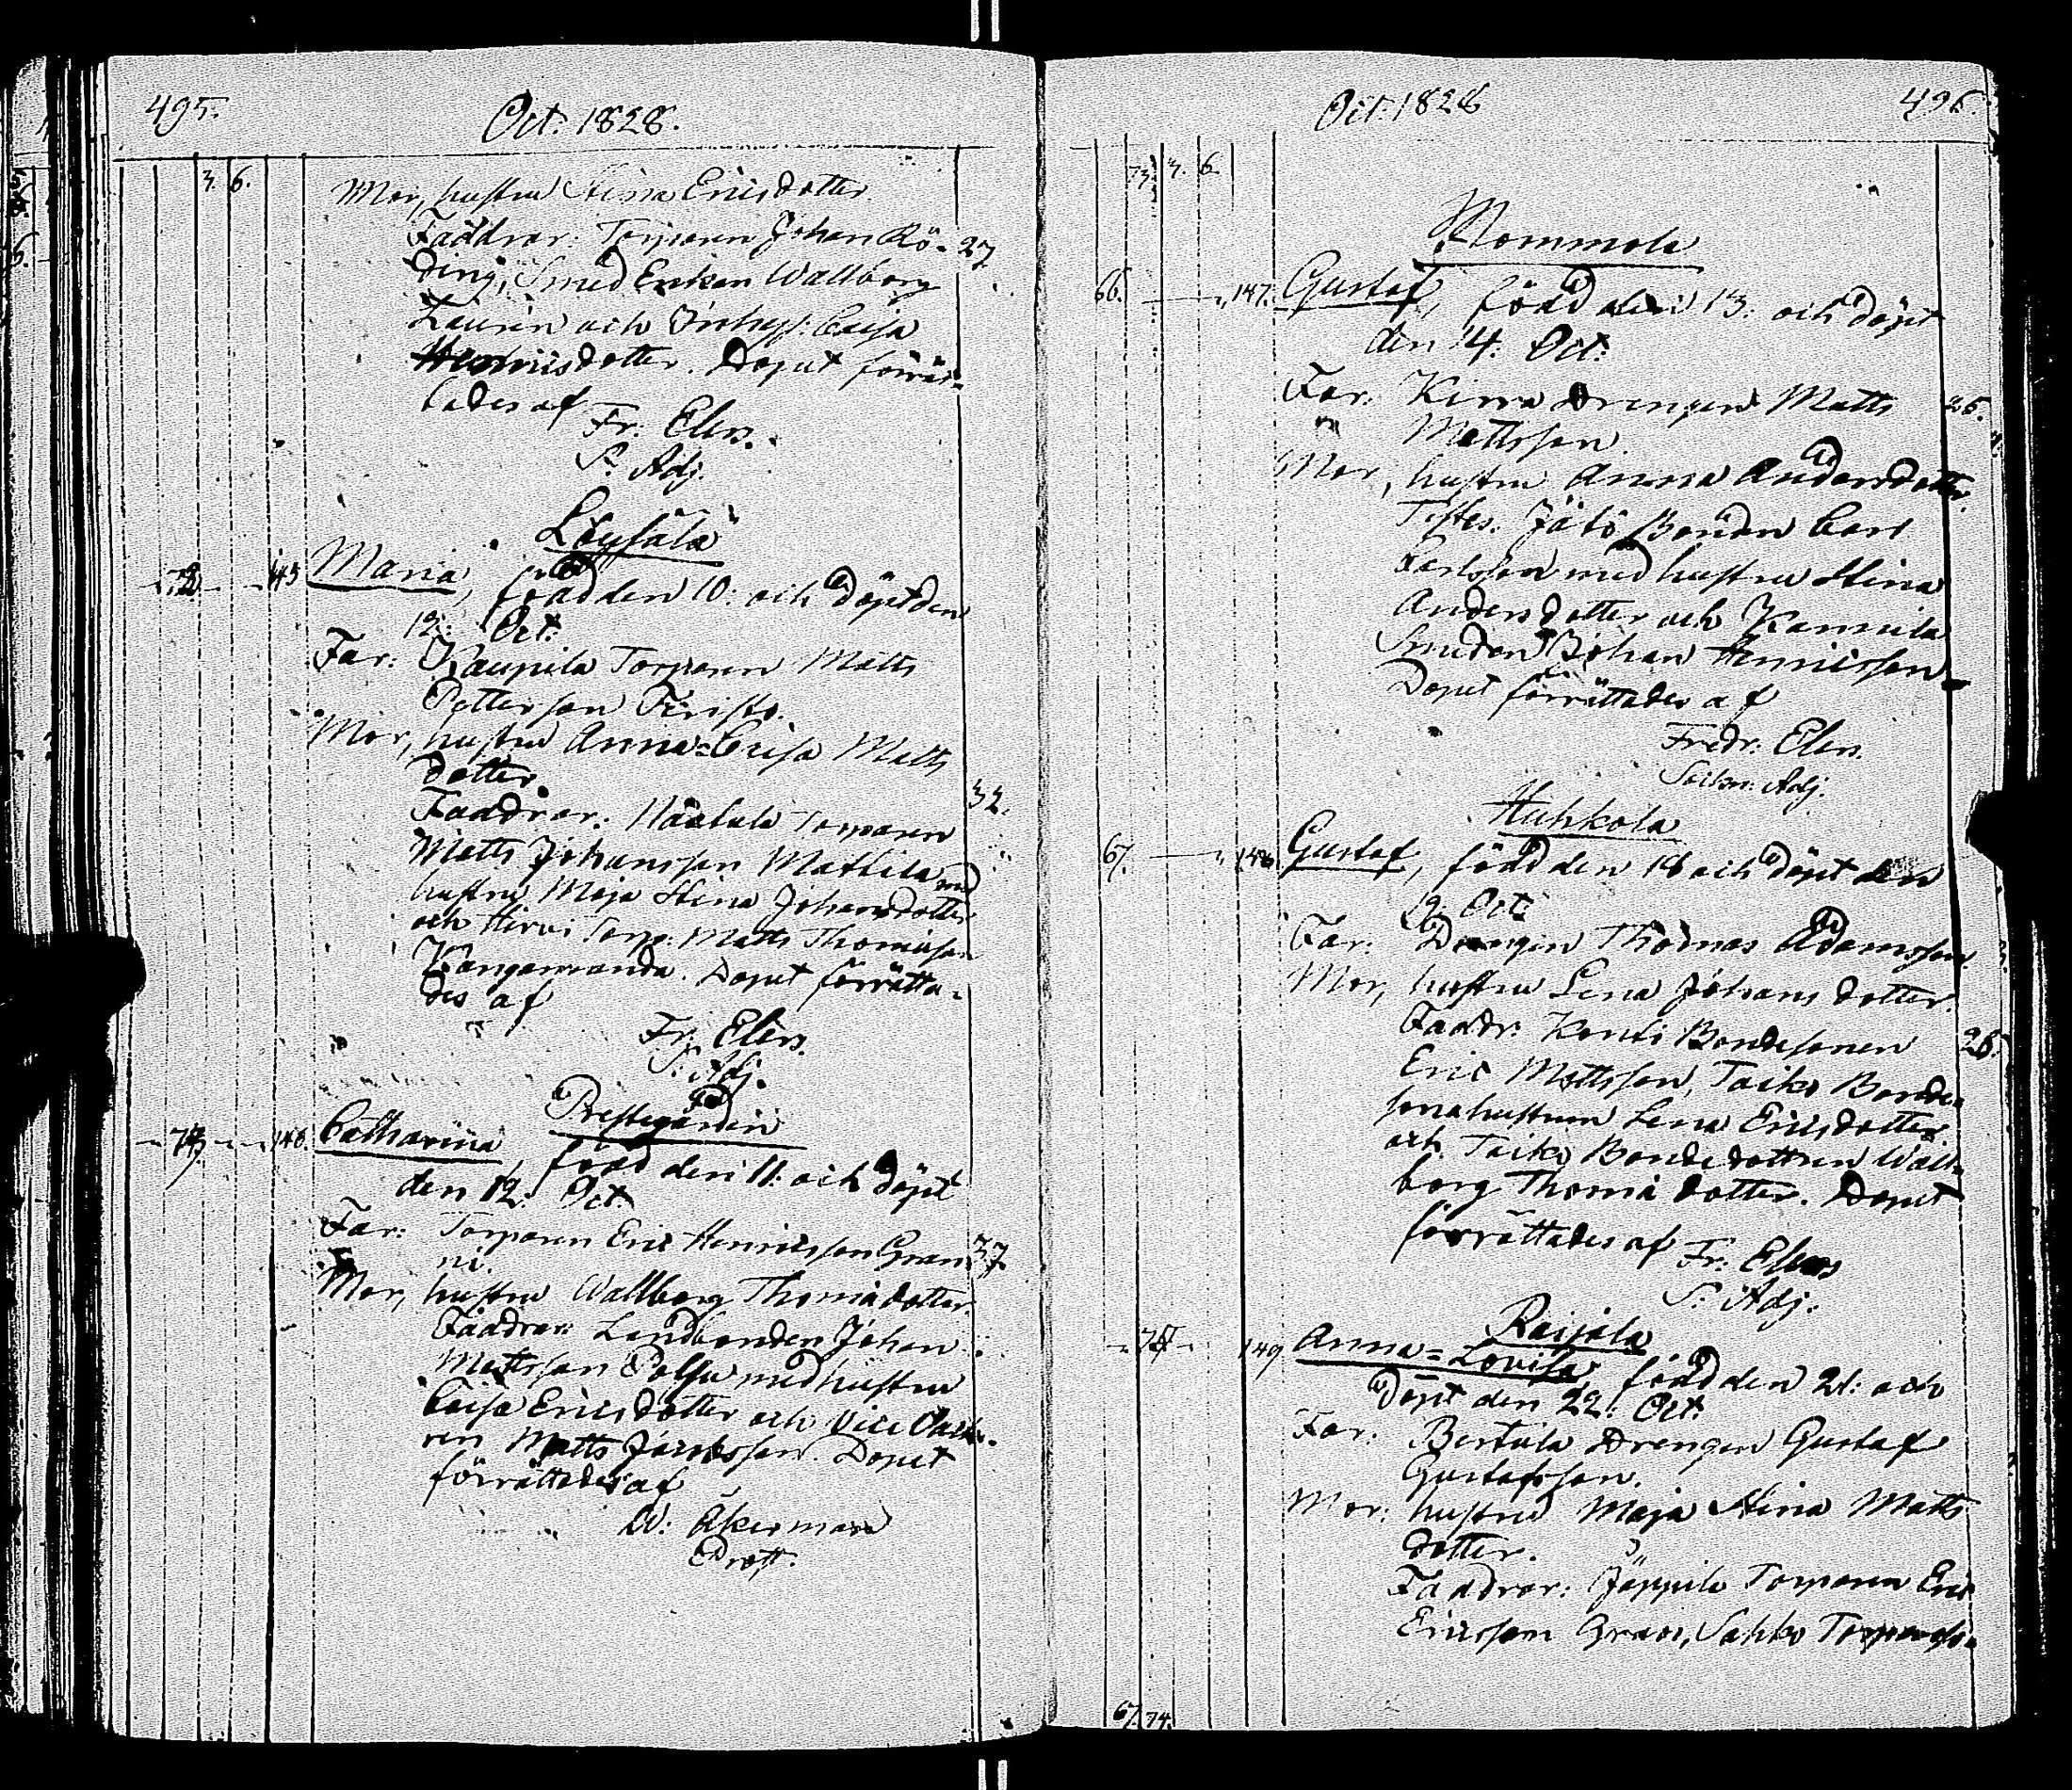 495.
Oct. 1828.
3. 6.
Mor, hustru Stina Ericsdotter
Faddrar: Torparen Johan Rö- 27
ding, Smed Enkan Wallborg
Laurin och Inhys: Caisa
Henricsdotter. Doput förrät-
tades af
Fr: Elers.
S. Adj.
Löysälä
72 145 Maria, född den 10: och döpt den
12: Oct:
Far: Kaupila Torparen Matts
Pettersson Friisto.
Mor, hustru Anna-Caisa Matts
dotter 32.
Faddrar: Torparen
Matts Johansson Mattila med
hustru Maja Stina Johansdotter
och Hirvi Torp: Matts Thomasson
Kangasranda. Doput förrätta-
des af
Fr: Elers.
S: Adj.
Prestegården
73 146. Catharina, född den 11: och döpt
den 12: Oct:
Far: Torparen Eric Henricsson Gran 37
ni.
Mor, hustru Wallborg Thomadotter.
Faddrar: Landbonden Johan
Mattsson Polsu med hustru
Caisa Ericsdotter och Vice
ren Matts Jacobsson. Doput
förrättades af
W: Åkerman
Prost.
Oct. 1828
496.
73. 3. 6.
Mommola
66. 147. Gustaf, född den 13: och döpt
den 14. Oct:
Far: Kirra Drengen Matts 26.
Mattsson.
Mor, hustru Anna Andersdotter.
Testes: Bonden Carl
Carlsson med hustru Stina
Andersdotter och
Smeden Johan Henricsson
Doput förrättades af
Fredr: Elers.
Sockn: Adj.
Huhkola
67. 148. Gustaf, född den 18 och döpt den
19: Oct:
Far: Drengen Thomas Adamsson.
Mor, hustru Lena Johansdotter
Faddr: Konti Bondesonen 26.
Eric Mattsson, Taiko Bonde-
sonahustrun Lena Ericsdotter
och Taiko Bondedottren Wall-
borg Thomadotter. Doput
förrättades af Fr: Elers
S: Adj.
Raijala
74 149 Anna-Lovisa, född den 21: och
döpt den 22: Oct.
Far: Bertula Drengen Gustaf
Gustafsson.
Mor: hustru Maja Stina Matts
dotter.
Faddrar: Jöppilä Torparen Eric
Ericsson Graas, Sahko
67. 74.